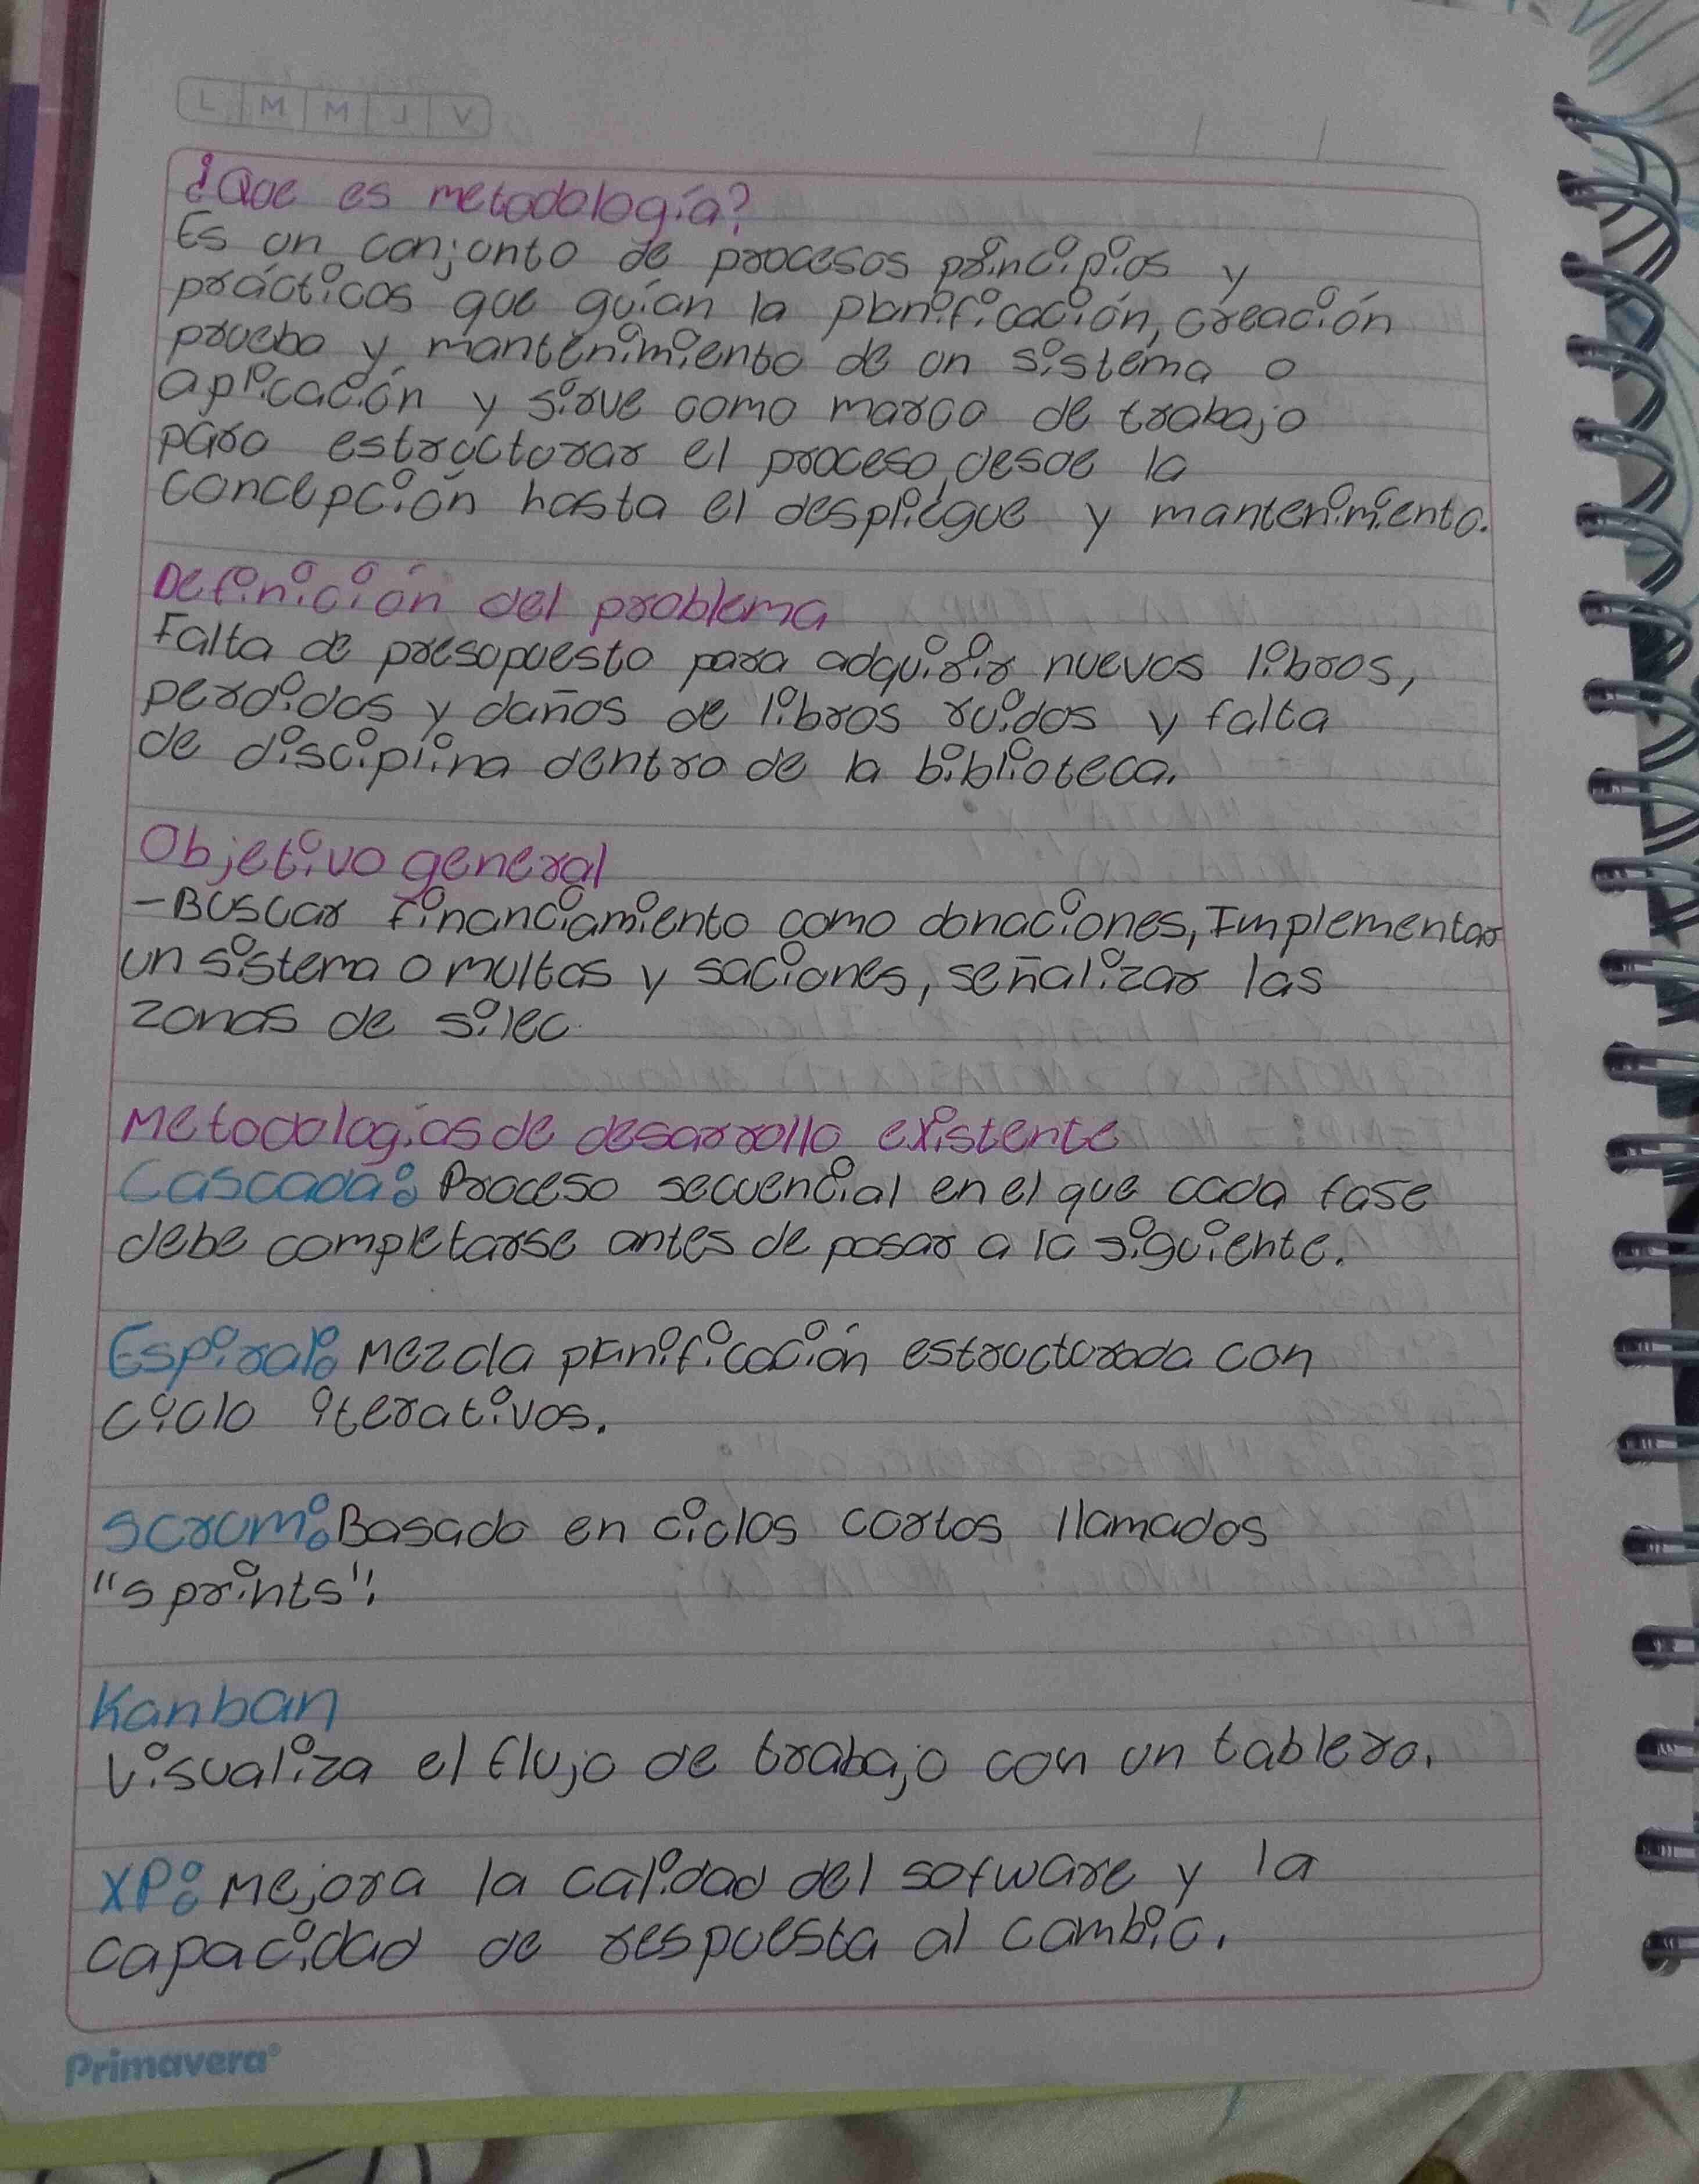 L M M J V
¿Que es metodología?
Es un conjunto de procesos principios y
prácticos que guían la planificación, creación
prueba y mantenimiento de un sistema o
aplicación y sirve como marco de trabajo
para estructurar el proceso, desde la
concepción hasta el despliegue y mantenimiento.
Definición del problema
Falta de presupuesto para adquirir nuevos libros,
perdidas y daños de libros ruidos y falta
de disciplina dentro de la biblioteca.
Objetivo general
-Buscar financiamiento como donaciones, Implementar
un sistema o multas y saciones, señalizar las
zonas de silec
Metodologías de desarrollo existente
Cascada: Proceso secuencial en el que cada fase
debe completarse antes de pasar a la siguiente.
Espiral: Mezcla planificación estructurada con
ciclo iterativos.
Scrum: Basado en ciclos cortos llamados
"sprints".
Kanban
Visualiza el flujo de trabajo con un tablero.
XP: Mejora la calidad del sofware y la
capacidad de respuesta al cambio.
Primavera